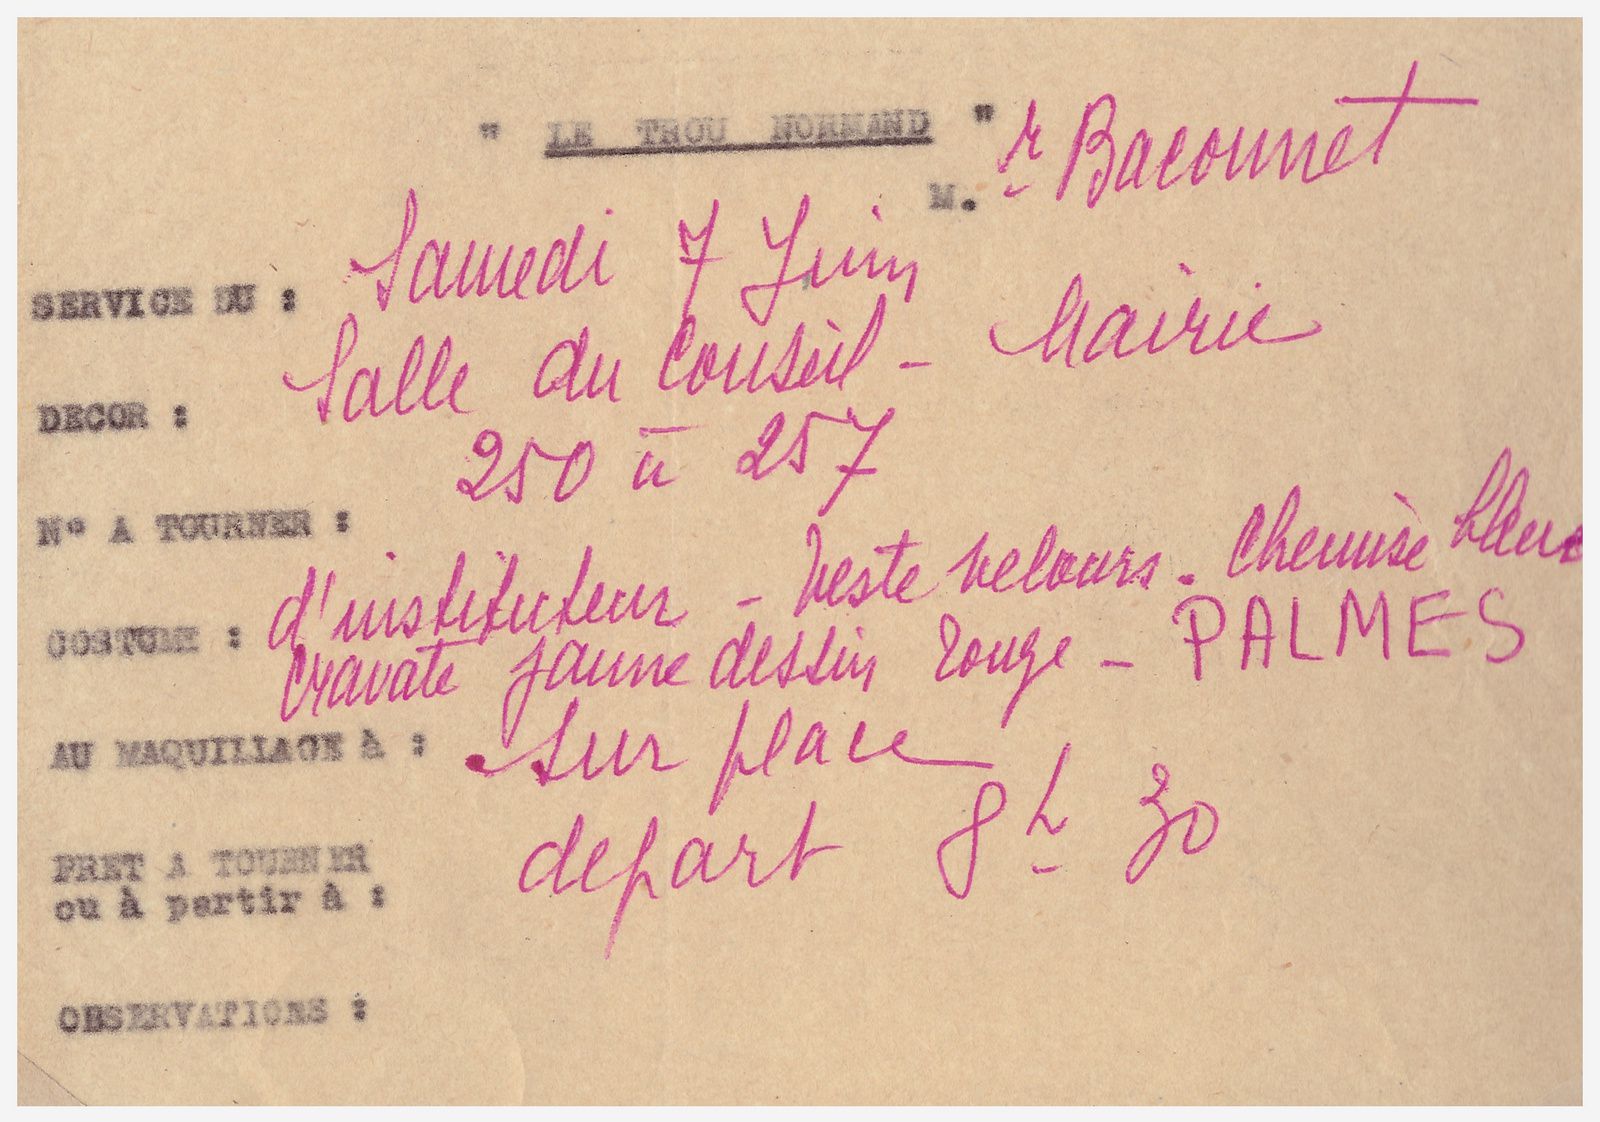 " LE TROU NORMAND "
M. r Baconnet
SERVICE DU : Samedi 7 Juin
DECOR : Salle du Conseil - Mairie
N° A TOURNER : 250 à 257
COSTUME : d'instituteur - Veste velours - Chemise
cravate jaune dessin rouge - PALMES
AU MAQUILLAGE à : sur place
PRET A TOURNER
ou à partir à : depart 8h 30
OBSERVATIONS :